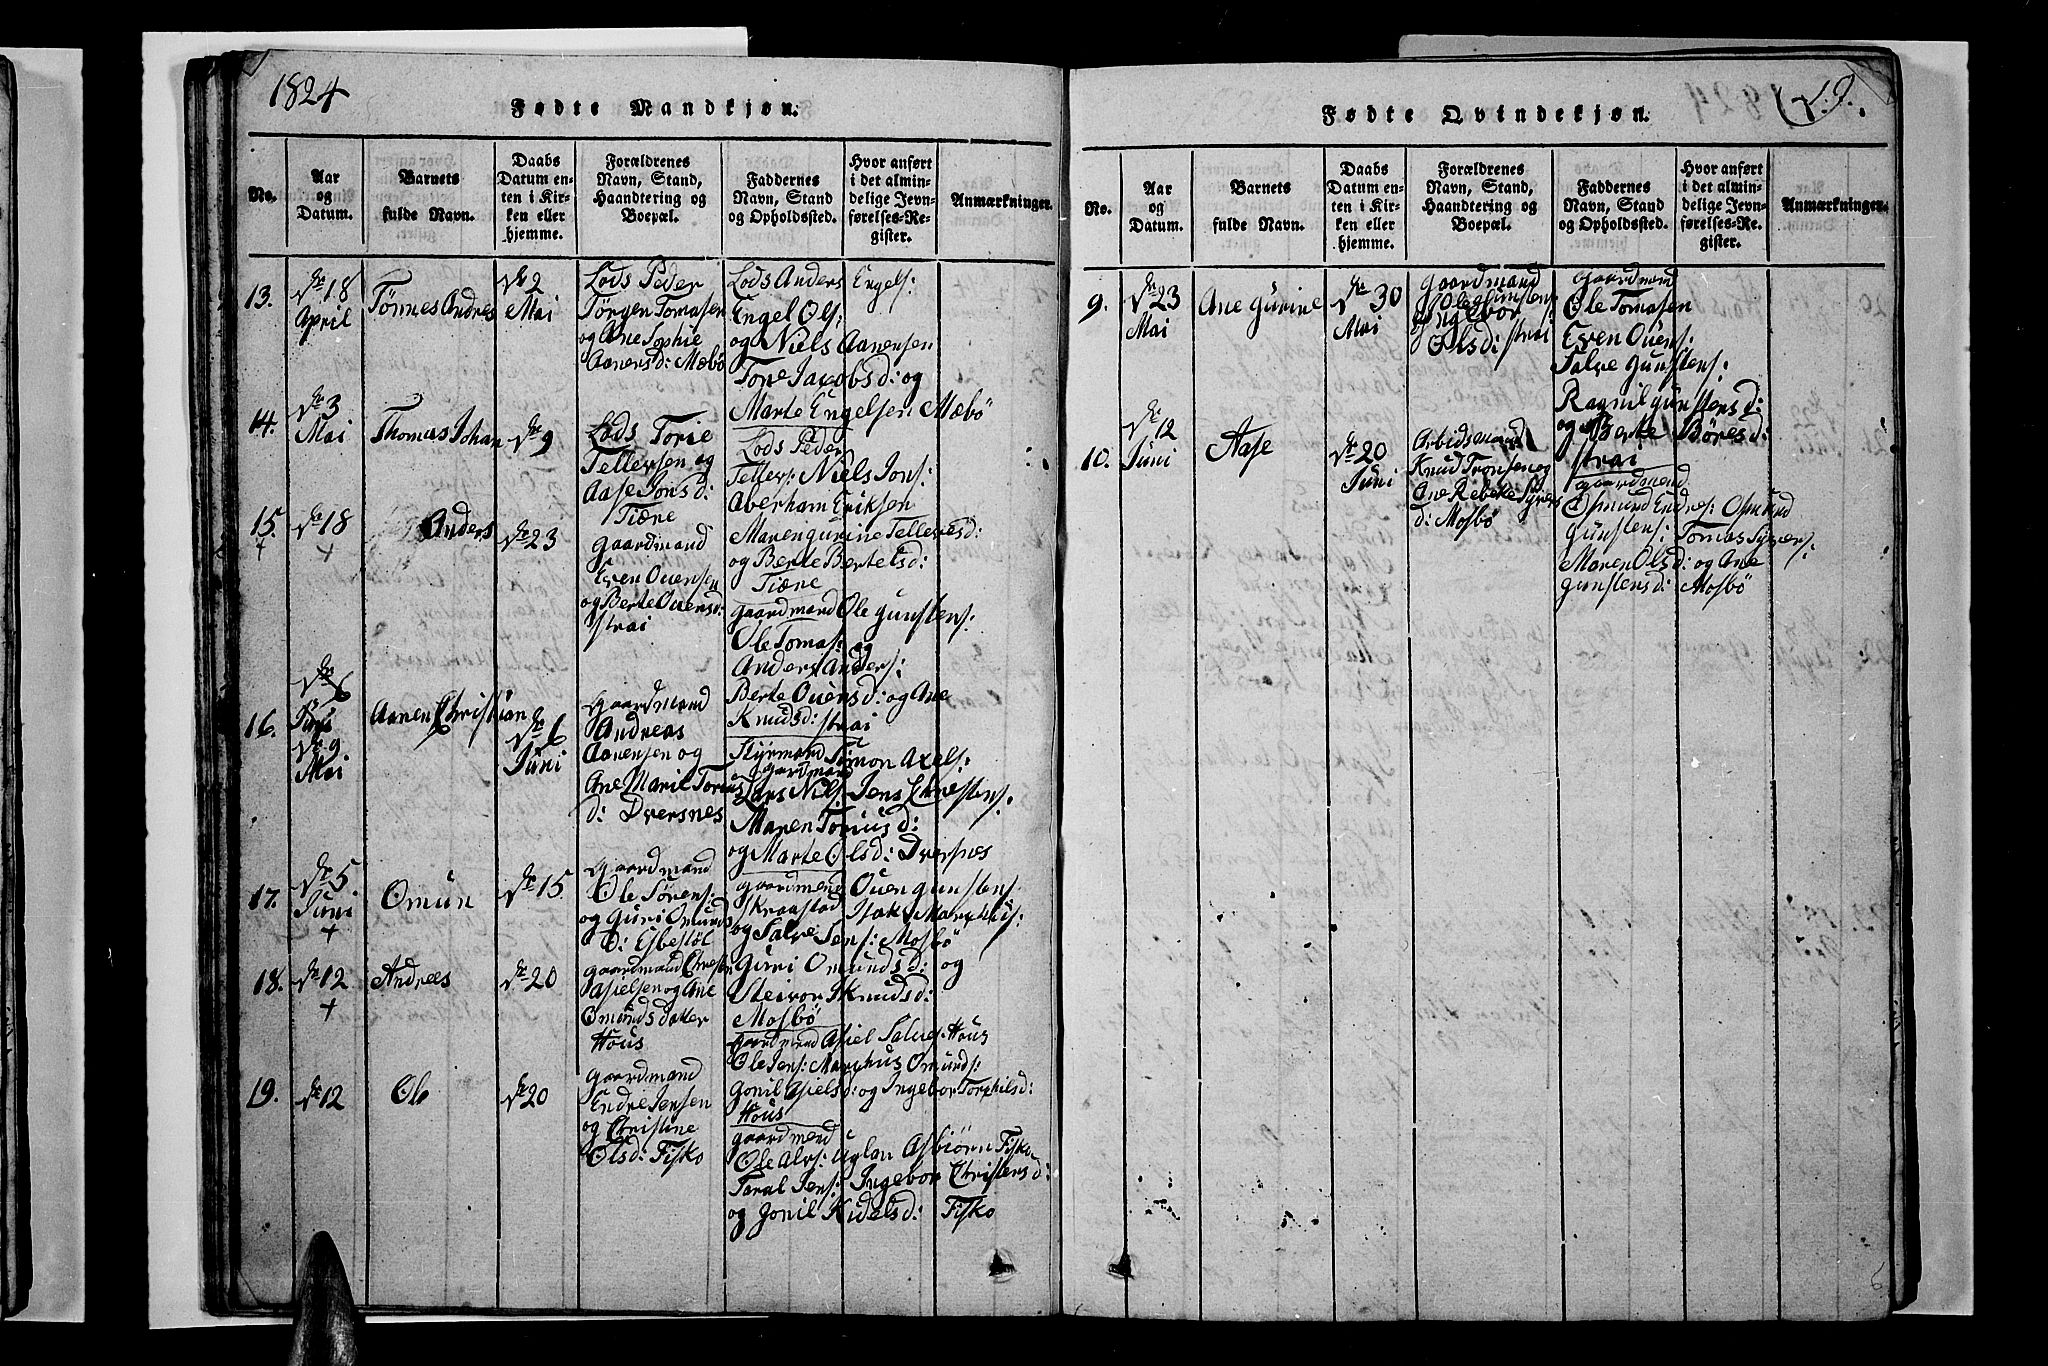 1824
Fødte Mandkjøn.
No.
Aar
og
Datum.
Barnets
fulde Navn.
Daabs
Datum en-
ten i Kir-
ken eller
hjemme.
Forældrenes
Navn, Stand,
Haandtering og
Boepæl.
Faddernes
Navn, Stand
og Opholdssted.
Hvor anført
i det almin-
delige Jevn-
førelses-Re-
gister.
Anmærkninger.
13.
18
April
Tønnes Andres
2
Mai
Lods Peder
Jørgen Tomasen
og Ane Sophie
Aanensd: Mæbø
Lods Anders Engels:
Engel Ols:
og Niels Aanensen
Tone Jacobsd: og
Marte Engelsen Mæbø
14.
3
Mai
Thomas Johan
9
Lods Torie
Tellefsen og
Aase Jonsd:
Tiære
Lods Peder
Tellefs: Niels Jons:
Aberham Eriksen
Maren gurine Tellevsd:
og Berte Bertelsd:
Tiære
15.
+
18
+
Anders
23
gaardmand
Even Ouensen
og Berte Ouensd:
strai
gaardmand Ole gunstens:
Ole Tomas: og
Anders Anders:
Berte Ouensd: og Ane
Knudsd: strai
16.
6
9
Mai
Aanen Christian
6
Juni
gaardmand
Andreas
Aanensen og
Ane Marie Torius
d: Dversnes
Styrmand Simon Axels:
og gaardmand
Lars Nils: Jens Christens:
Maren Toriusd:
og Marte Olsd: Dversnes
17.
5
Juni
+
Omun
15
gaardmand
Ole Sørens:
og guri Omunds
D: Esbestøl
gaardmend Ouen gunstens:
skraastad Isak Marchus:
og Salve Jens: Mosbø
guri Omundsd: og
Steivor Knudsd:
Mosbø
18.
12
+
Andreas
20
gaardmand Christen
Asielsen og Ane
Omundsdatter
Hous
gaardmend Asiel Salves: Hous
Ole Jens: Marchus Omunds:
gonil Asielsd: og Ingebor Torkilsd:
Hous
19.
12
Ole
20
gaardmand
Endre Jensen
og Christine
Olsd: Fisko
gaardmend
Ole Alvs: Uglan Asbiørn Fisko
Taral Jens: Ingebor Christensd:
og gonil Kidelsd: Fisko
19.
Fødte Qvindekjøn.
No.
Aar
og
Datum.
Barnets
fulde Navn.
Daabs
Datum en-
ten i Kir-
ken eller
hjemme.
Forældrenes
Navn, Stand,
Haandtering og
Boepæl.
Faddernes
Navn, Stand
og Opholdssted.
Hvor anført
i det almin-
delige Jevn-
førelses-Re-
gister.
Anmærkninger.
9.
23
Mai
Ane gurine
30
Mai
gaardmand
Ole gunstens:
og Ingebor
Olsd: strai
gaardmend
Ole Tomasen
Even Ouens:
Salve gunstens:
Ragnil gunstensd:
og Berte Böresd:
strai
10.
12
Juni
Aase
20
Juni
Arbidsmand
Knud Tronsen og
Ane Rebeke Syvers
d: Mosbø
gaardmend
Osmund Endres: Osmund
gunstens: Tomas Syvers:
Maren Olsd: og Ane
gunstensd: Mosbø